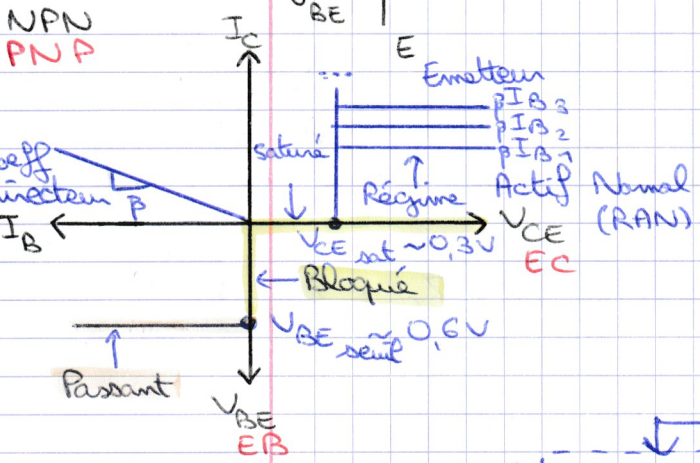 NPN
PNP
VBE
E
IC
Emetteur
...
βIB3
βIB2
βIB1
saturé
Régime Actif Normal
(RAN)
β
IB
VCE
EC
VCE sat ~0,3V
Bloqué
VBE seuil ~ 0,6V
Passant
VBE
EB